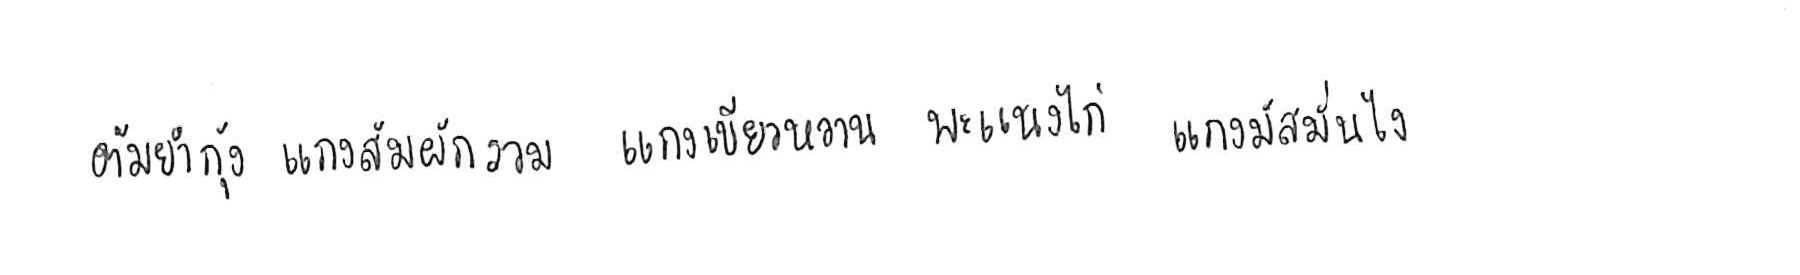 ต้มยำกุ้ง แกงส้มผักรวม แกงเขียวหวาน พะแนงไก่ แกงมัสมั่นไง